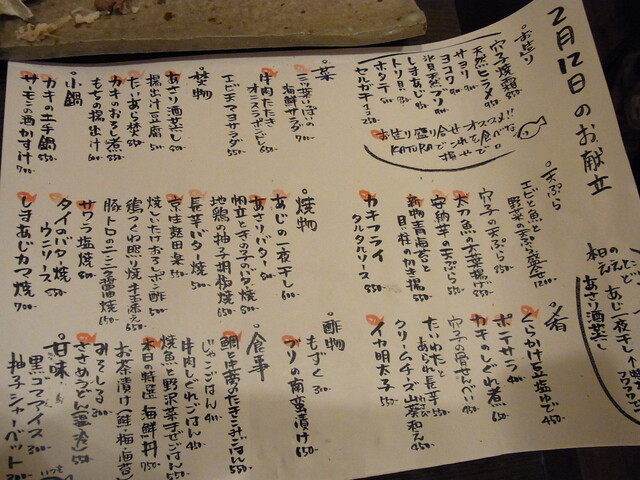 2月12日のお献立
お造り
穴子焼霜 850-
天然ヒラメ 950-
サヨリ
ヨコワ 900-
氷見天然ブリ 900-
しまあじ 950-
トリ貝 850-
ホタテ
セルガキ1コ 350-
お造り盛り合せオススメ!!
KATURA
菜
三つ葉いっぱいの
海鮮サラダ 700-
牛肉たたき
オニスラポンズ 650-
エビ玉マヨサラダ 550-
焚物
あさり酒蒸し 600-
揚出汁豆腐 500-
たいあら焚 550-
カキのおろし煮 550-
もちの揚出汁 600-
小鍋
カキの土手鍋 650-
サーモンの酒かす汁 700-
天ぷら
エビと魚と
野菜の天ぷら盛合せ 1200-
穴子の天ぷら 850-
太刀魚の大葉揚げ 850-
安納芋の天ぷら 550-
新物青海苔と
貝柱のかき揚 550-
カキフライ
タルタルソース 850-
焼物
あじの一夜干し 600-
あさりバター 600-
帆立ときの子のバター焼 800-
地鶏の柚子胡椒焼 650-
長芋バター焼 500-
京生麩田楽 550-
焼しいたけおろしポン酢 500-
鶏つくね照り焼 半玉添え 650-
豚トロのニンニク醤油焼 650-
サワラ塩焼 800-
タイのバター焼
ウニソース 850-
しまあじカマ焼 700-
肴
くらかけ豆塩ゆで 450-
ポテサラ 400-
カキのしぐれ煮 650-
穴子の骨せんべい 400-
たいわたと
あられ長芋 550-
クリームチーズ山葵和え 450-
イカ明太子 550-
酢物
もずく 300-
ブリの南蛮漬け 650-
食事
じゃこごはん 400-
牛肉しぐれごはん 450-
焼魚と野沢菜まぜごはん 550-
本日の特選 海鮮丼 750-
お茶漬け(鮭・梅・海苔) 550-
みそしる 300-
甘味
黒ゴマアイス 300-
柚子シャーベット 300-
あじ一夜干し
あさり酒蒸し